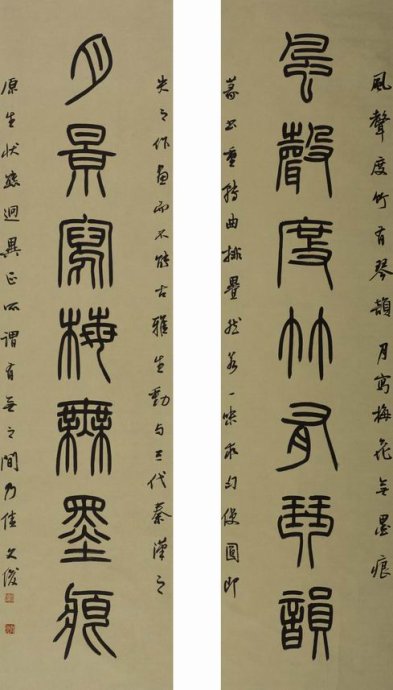 風聲度竹有琴韻 月寫梅花無墨痕
風聲度竹有琴韻
篆書重轉曲排疊然若一味求勻使圓即
失之作畫而不能古雅生動与三代秦漢之
月景寫梅無墨痕
原生狀態迥異正所謂有無之間乃佳 文俊